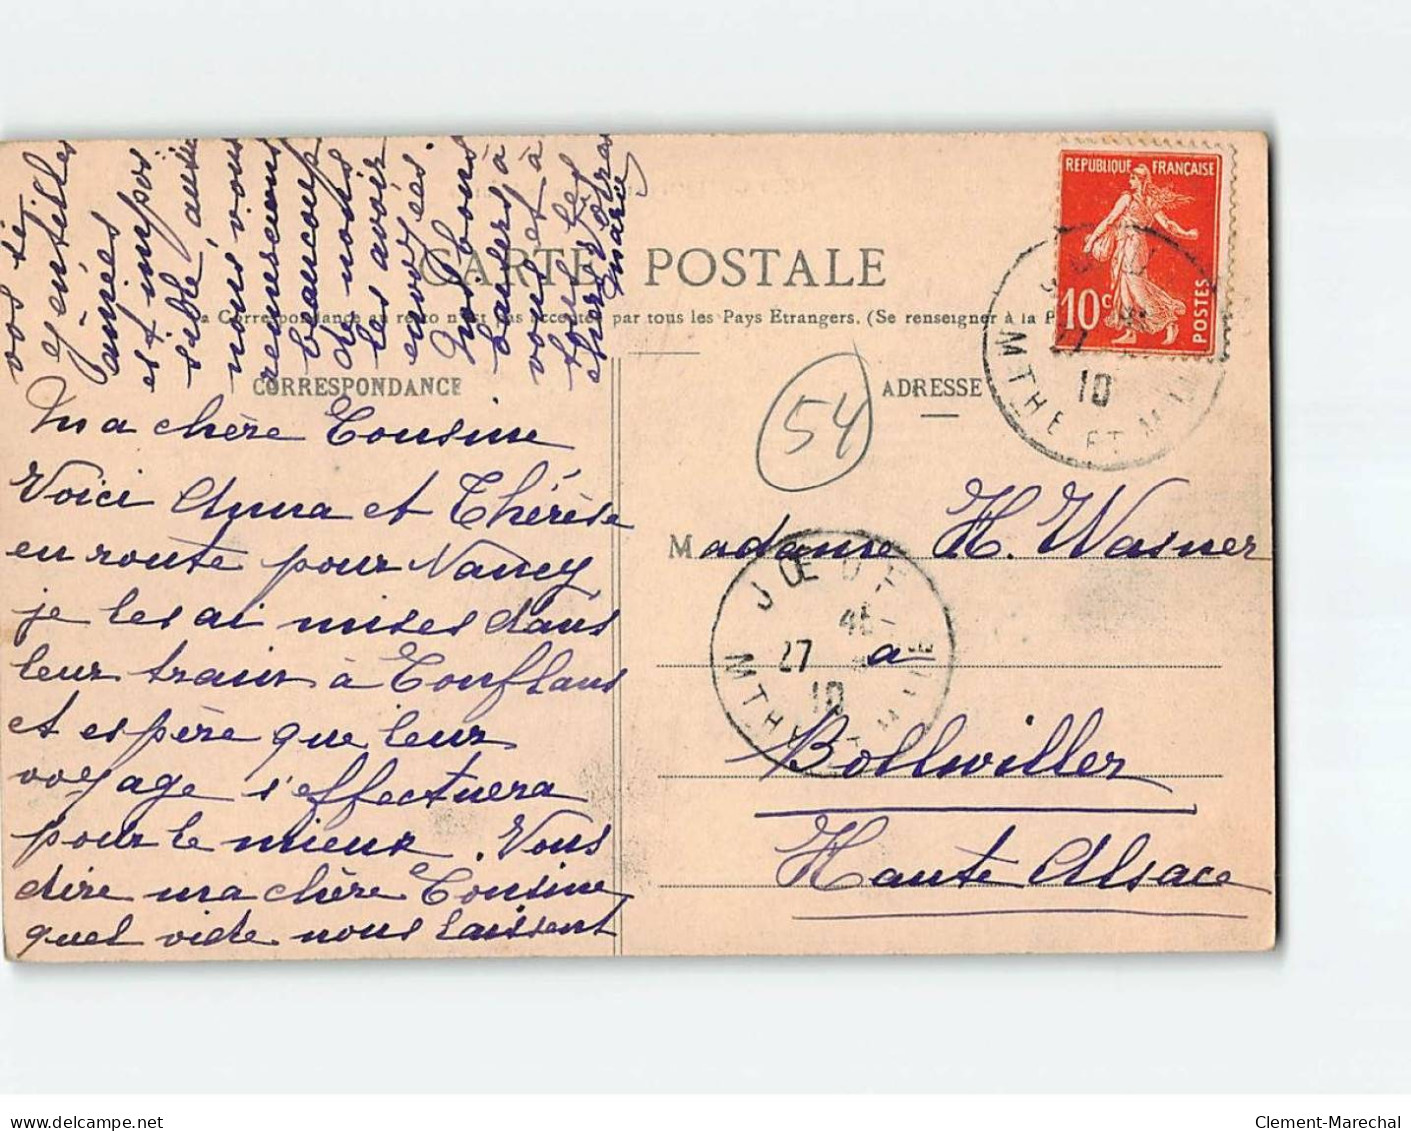 CARTE POSTALE
La Correspondance au recto n'est pas acceptée par tous les Pays Etrangers. (Se renseigner à la P
CORRESPONDANCE
Ma chère Cousine
Voici Anna et Thérèse
en route pour Nancy,
je les ai mises dans
leur train à Conflans
et espère que leur
voyage s'effectuera
pour le mieux. Vous
dire ma chère Cousine
quel vide nous laissent
vos si
gentilles
amies
est impos
sible, aussi
nous vous
remercions
beaucoup
de nous
les avoir
envoyées.
Nos bons
baisers à
vous et à
tous les
chers vôtres
Marie
ADRESSE
54
REPUBLIQUE FRANÇAISE
10 c
POSTES
10
MTHE ET M
Madame H. Wasner
à
Bollwiller
Haute Alsace
JŒUF
45
27
10
MTHE ET M
delcampe.net
Clement-Marechal